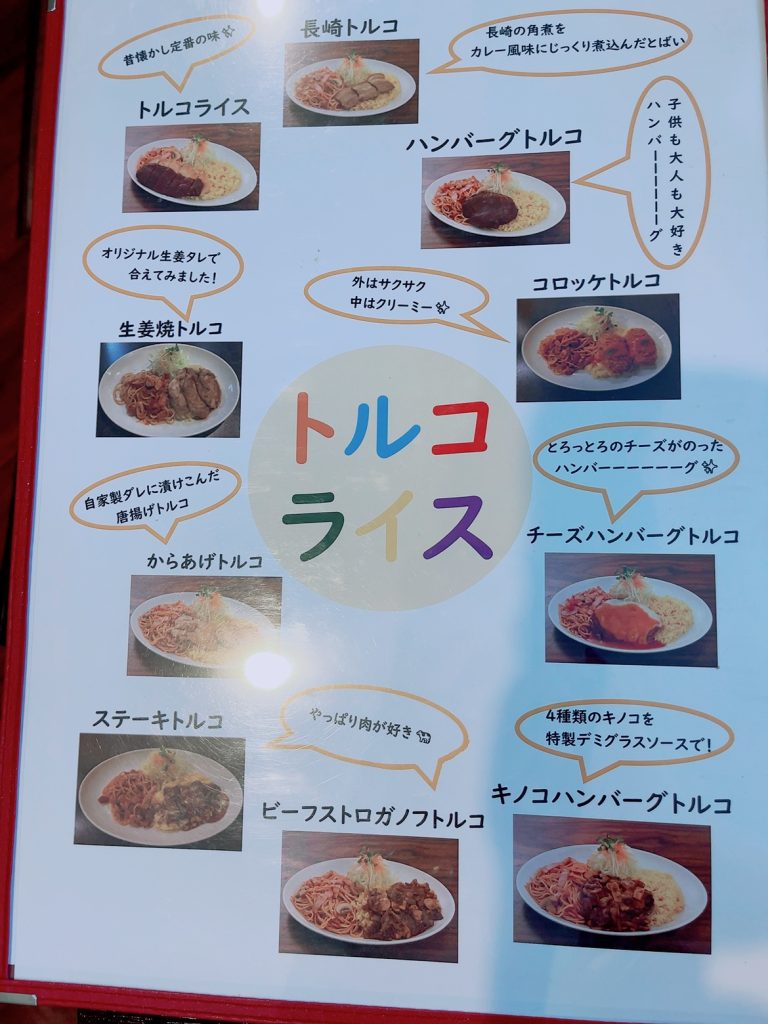 長崎トルコ
長崎の角煮を
カレー風味にじっくり煮込んだとばい
昔懐かし定番の味
トルコライス
ハンバーグトルコ
子供も大人も大好き
ハンバーーーーーーグ
オリジナル生姜タレで
合えてみました!
生姜焼トルコ
外はサクサク
中はクリーミー
コロッケトルコ
トルコ
ライス
とろっとろのチーズがのった
ハンバーーーーーーグ
チーズハンバーグトルコ
自家製ダレに漬けこんだ
唐揚げトルコ
からあげトルコ
ステーキトルコ
やっぱり肉が好き
ビーフストロガノフトルコ
4種類のキノコを
特製デミグラスソースで!
キノコハンバーグトルコ